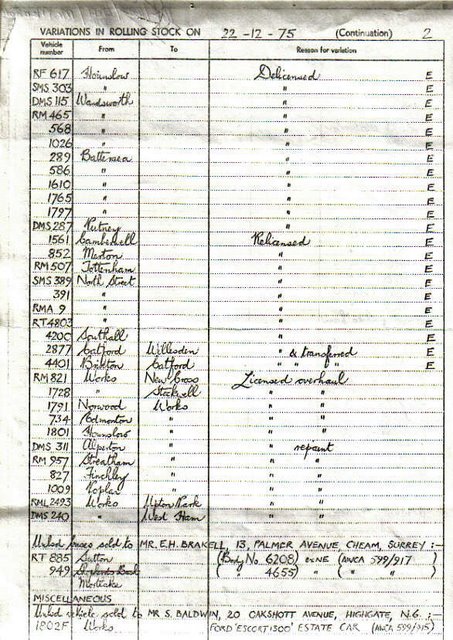 VARIATIONS IN ROLLING STOCK ON 22-12-75 (Continuation) 2
Vehicle number From To Reason for variation
RF 617 Hounslow Delicensed E
SMS 303 " " E
DMS 115 Wandsworth " E
RM 465 " " E
568 " " E
1026 " " E
289 Battersea " E
586 " " E
1610 " " E
1765 " " E
1797 " " E
DMS 287 Putney " E
1561 Camberwell Relicensed E
852 Merton " E
RM 507 Tottenham " E
SMS 389 North Street " E
391 " " E
RMA 9 " " E
RT 4803 " " E
4200 Southall " E
2877 Catford Willesden " & transferred E
4401 Brixton Catford " " " E
RM 821 Works New Cross Licensed overhaul
1728 " Stockwell " "
1791 Norwood Works " "
734 Edmonton " " "
1801 Hounslow " " "
DMS 311 Alperton " " repaint
RM 957 Streatham " " "
827 Finchley " " "
1009 Poplar " " "
RML 2493 Works Upton Park " "
DMS 240 " West Ham " "
sold to MR. E.H. BRAKELL, 13, PALMER AVENUE CHEAM, SURREY :—
RT 885 Sutton (Body No 6208) (AWCA 599/917)
949 ( " 4655) " ( " " )
Mortlake
MISCELLANEOUS
vehicle sold to MR S. BALDWIN, 20 OAKSHOTT AVENUE, HIGHGATE, N.6. :—
1802F Works FORD 'ESCORT 1300' ESTATE CAR (AWCA 599/915)